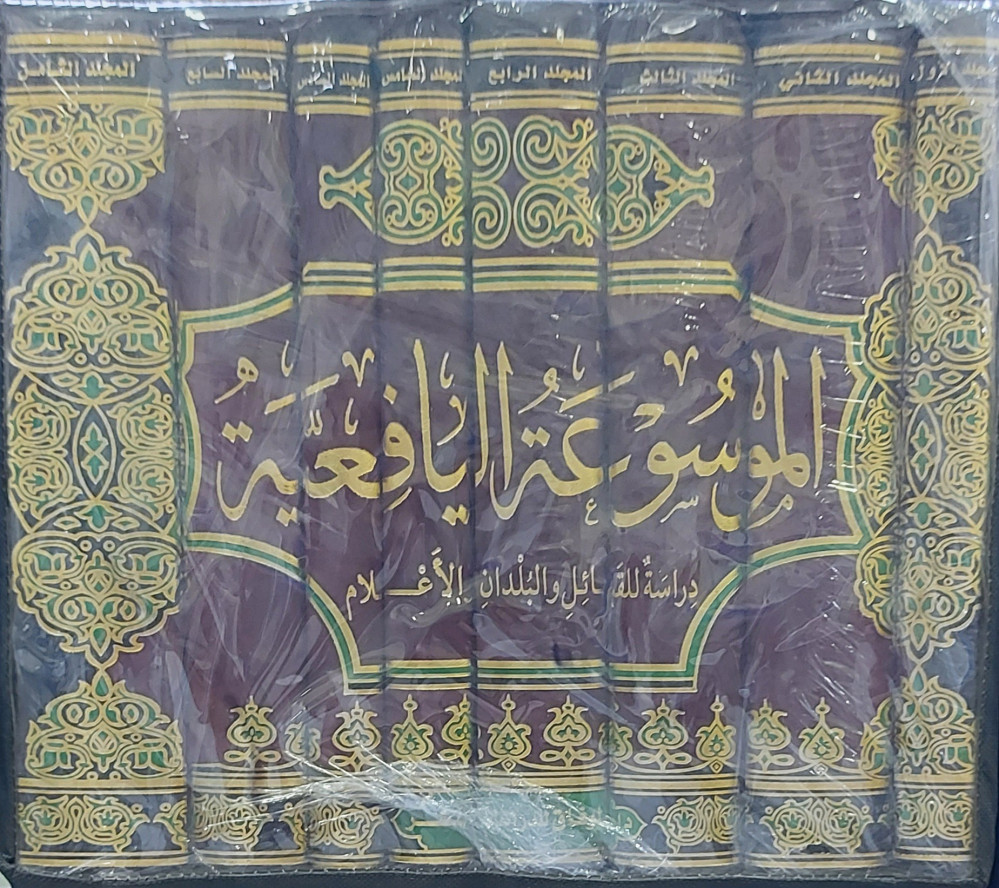 المجلد الأول المجلد الثاني المجلد الثالث المجلد الرابع المجلد الخامس المجلد السادس المجلد السابع المجلد الثامن
الموسوعة اليافعية
دراسة للقبائل والبلدان والأعلام